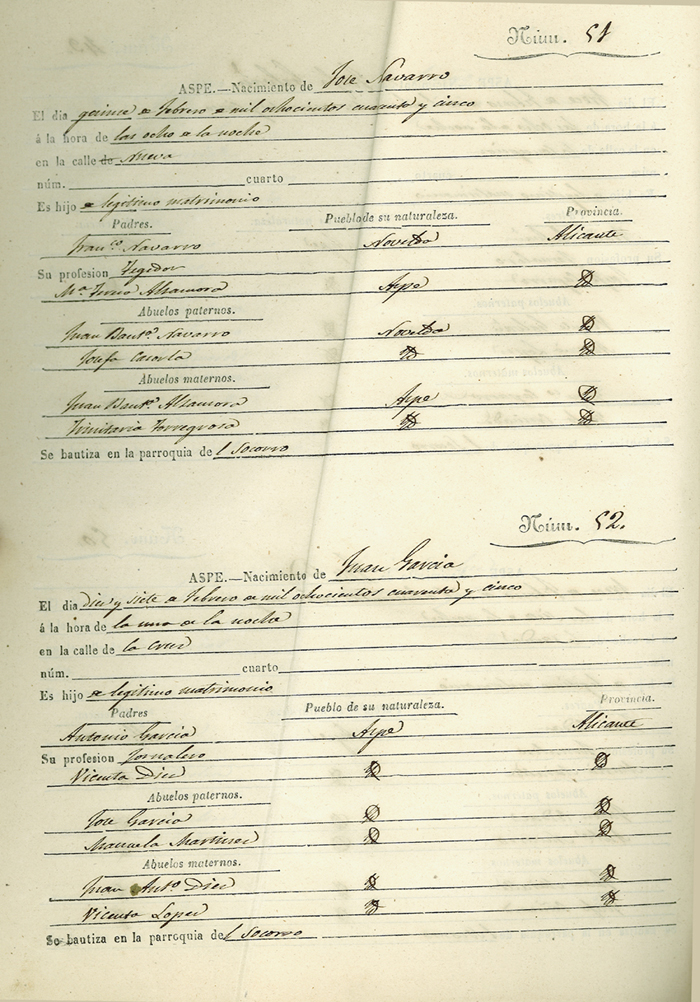 Núm. 51
ASPE.—Nacimiento de Jose Navarro
El dia quince de febrero de mil ochocientos cuarenta y cinco
á la hora de las ocho de la noche
en la calle de Nueva
núm. cuarto
Es hijo de legitimo matrimonio
Padres. Pueblo de su naturaleza. Provincia.
Fran.co Navarro Novelda Alicante
Su profesion Tegidor
M.a Alzamora Aspe D
Abuelos paternos.
Juan Baut.a Navarro Novelda D
Josefa Cazorla D D
Abuelos maternos.
Juan Baut.a Alzamora Aspe D
Trinitaria Torregrosa D D
Se bautiza en la parroquia del Socorro
Núm. 52.
ASPE.—Nacimiento de Juan Garcia
El dia diez y siete de febrero de mil ochocientos cuarenta y cinco
á la hora de la una de la noche
en la calle de la Cruz
núm. cuarto
Es hijo de legitimo matrimonio
Padres Pueblo de su naturaleza. Provincia.
Antonio Garcia Aspe Alicante
Su profesion Jornalero
Vicenta Diez D D
Abuelos paternos.
Jose Garcia D D
Manuela Martinez D D
Abuelos maternos.
Juan Ant.o Diez D D
Vicenta Lopez D D
Se bautiza en la parroquia del Socorro